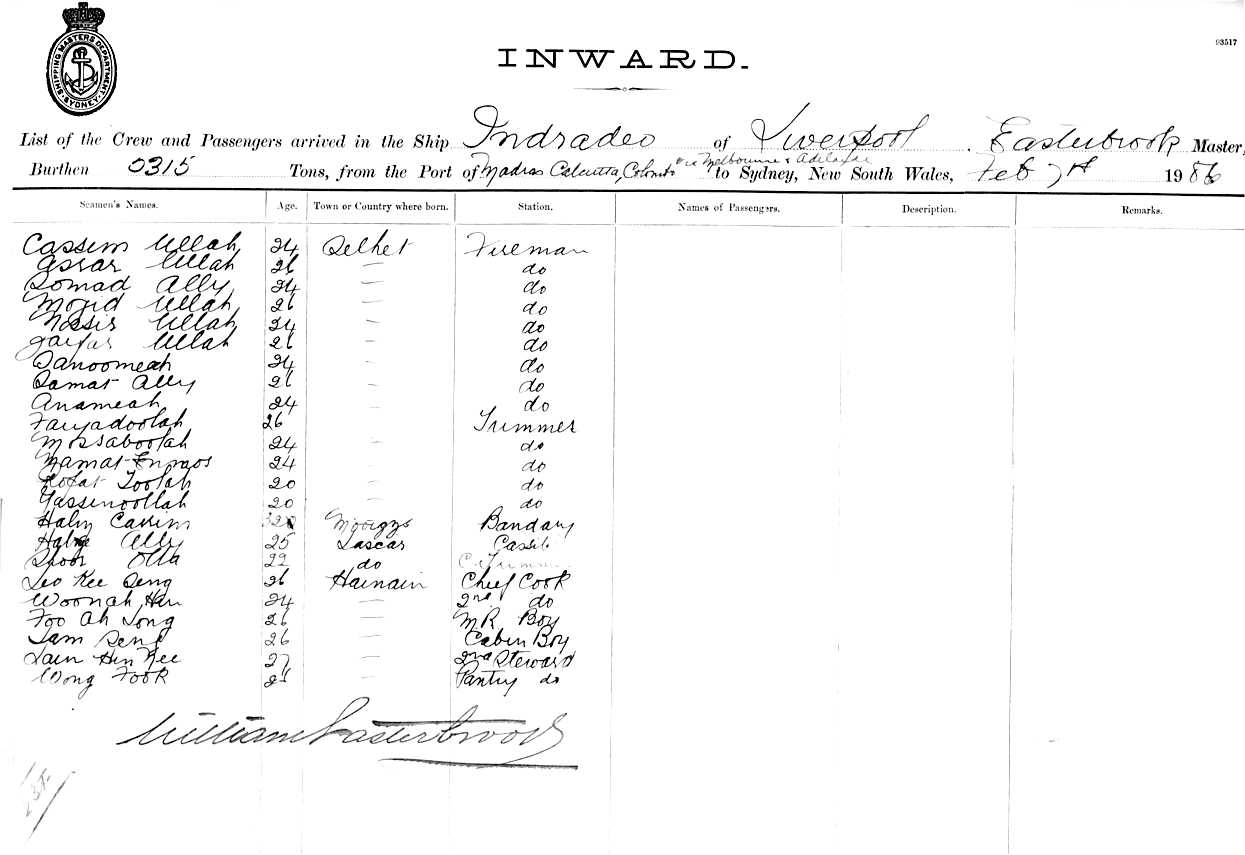 SHIPPING MASTERS DEPARTMENT SYDNEY
93517
INWARD.
List of the Crew and Passengers arrived in the Ship Indradeo of Liverpool . Easterbrook Master,
Burthen 0315 Tons, from the Port of Madras Calcutta, Colombo via Melbourne & Adelaide to Sydney, New South Wales, Feb 7th 1986
Seamen's Names. Age. Town or Country where born. Station. Names of Passengers. Description. Remarks.
Cassim Ullah 24 Selhet Fireman
Asrar Ullah 26 — do
Somad Ally 24 — do
Mozid Ullah 26 — do
Nassir Ullah 24 — do
Gaifar Ullah 26 — do
Sanoomeah 24 — do
Samat Ally 26 — do
Anameah 24 — do
Faiyadoolah 26 Trimmer
Mossaboolah 24 — do
Mamat 24 — do
Toolah 20 — do
Yassinoollah 20 — do
Cassim Bandary
Ally 25 Lascar Cassib
Olla 22 do
Leo Kee Seng 26 Hainain Chief Cook
Woonah Hin 24 — 2nd do
Foo Ah Long 26 — MR Boy
Sam Seng 26 — Cabin Boy
Lain Hin Kee 27 — 2nd Steward
Wong Fook — Pantry do
William Easterbrook